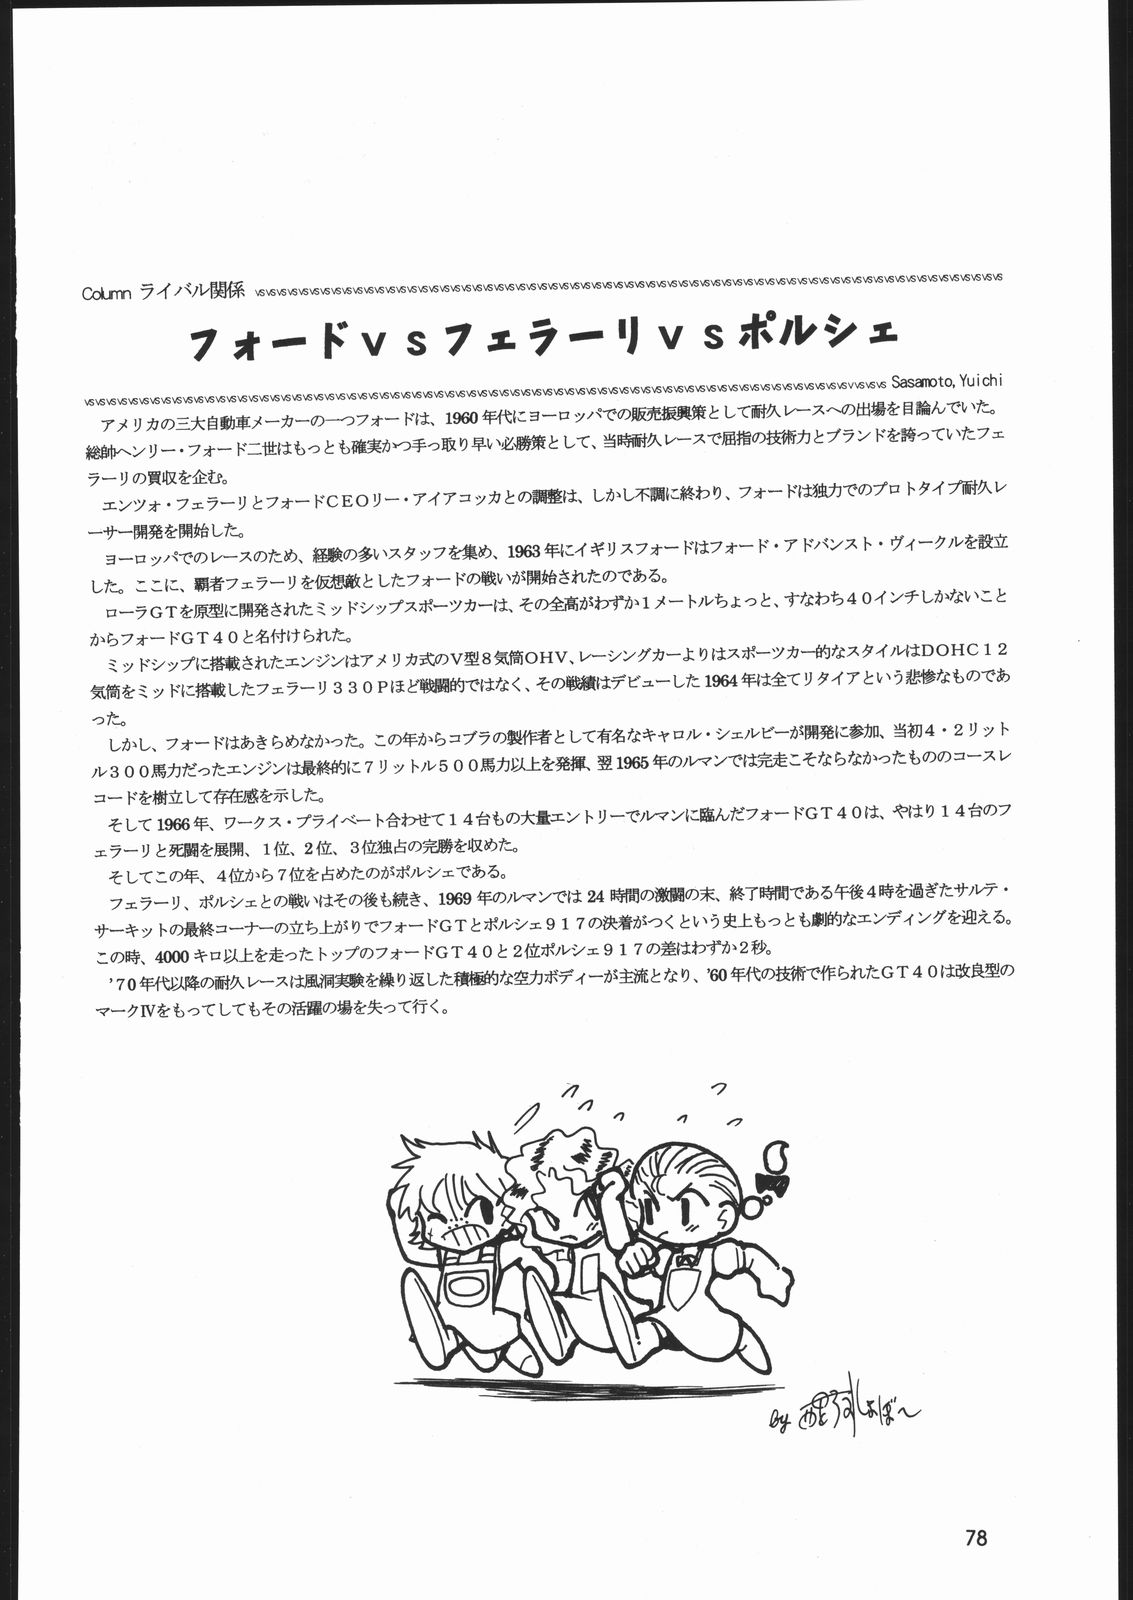 Column ライバル関係 vsvsvsvsvsvsvsvsvsvsvsvsvsvsvsvsvsvsvsvsvsvsvsvsvsvsvsvsvsvsvsvsvsvsvsvsvsvsvsvsvsvsvsvsvsvsvsvsvsvsvsvsvsvsvs
フォードｖｓフェラーリｖｓポルシェ
vsvsvsvsvsvsvsvsvsvsvsvsvsvsvsvsvsvsvsvsvsvsvsvsvsvsvsvsvsvsvsvsvsvsvsvsvsvsvsvsvsvsvsvsvsvsvsvsvsvsvsvsvsvsvvsvsvs Sasamoto,Yuichi
　アメリカの三大自動車メーカーの一つフォードは、1960年代にヨーロッパでの販売振興策として耐久レースへの出場を目論んでいた。
総帥ヘンリー・フォード二世はもっとも確実かつ手っ取り早い必勝策として、当時耐久レースで屈指の技術力とブランドを誇っていたフェ
ラーリの買収を企む。
　エンツォ・フェラーリとフォードＣＥＯリー・アイアコッカとの調整は、しかし不調に終わり、フォードは独力でのプロトタイプ耐久レ
ーサー開発を開始した。
　ヨーロッパでのレースのため、経験の多いスタッフを集め、1963年にイギリスフォードはフォード・アドバンスト・ヴィークルを設立
した。ここに、覇者フェラーリを仮想敵としたフォードの戦いが開始されたのである。
　ローラＧＴを原型に開発されたミッドシップスポーツカーは、その全高がわずか１メートルちょっと、すなわち４０インチしかないこと
からフォードＧＴ４０と名付けられた。
　ミッドシップに搭載されたエンジンはアメリカ式のＶ型８気筒ＯＨＶ、レーシングカーよりはスポーツカー的なスタイルはＤＯＨＣ１２
気筒をミッドに搭載したフェラーリ３３０Ｐほど戦闘的ではなく、その戦績はデビューした1964年は全てリタイアという悲惨なものであ
った。
　しかし、フォードはあきらめなかった。この年からコブラの製作者として有名なキャロル・シェルビーが開発に参加、当初４・２リット
ル３００馬力だったエンジンは最終的に７リットル５００馬力以上を発揮、翌1965年のルマンでは完走こそならなかったもののコースレ
コードを樹立して存在感を示した。
　そして1966年、ワークス・プライベート合わせて１４台もの大量エントリーでルマンに臨んだフォードＧＴ４０は、やはり１４台のフ
ェラーリと死闘を展開、１位、２位、３位独占の完勝を収めた。
　そしてこの年、４位から７位を占めたのがポルシェである。
　フェラーリ、ポルシェとの戦いはその後も続き、1969年のルマンでは24時間の激闘の末、終了時間である午後４時を過ぎたサルテ・
サーキットの最終コーナーの立ち上がりでフォードＧＴとポルシェ９１７の決着がつくという史上もっとも劇的なエンディングを迎える。
この時、4000キロ以上を走ったトップのフォードＧＴ４０と２位ポルシェ９１７の差はわずか２秒。
　’７０年代以降の耐久レースは風洞実験を繰り返した積極的な空力ボディーが主流となり、’60年代の技術で作られたＧＴ４０は改良型の
マークⅣをもってしてもその活躍の場を失って行く。
by しょぼ〜
78